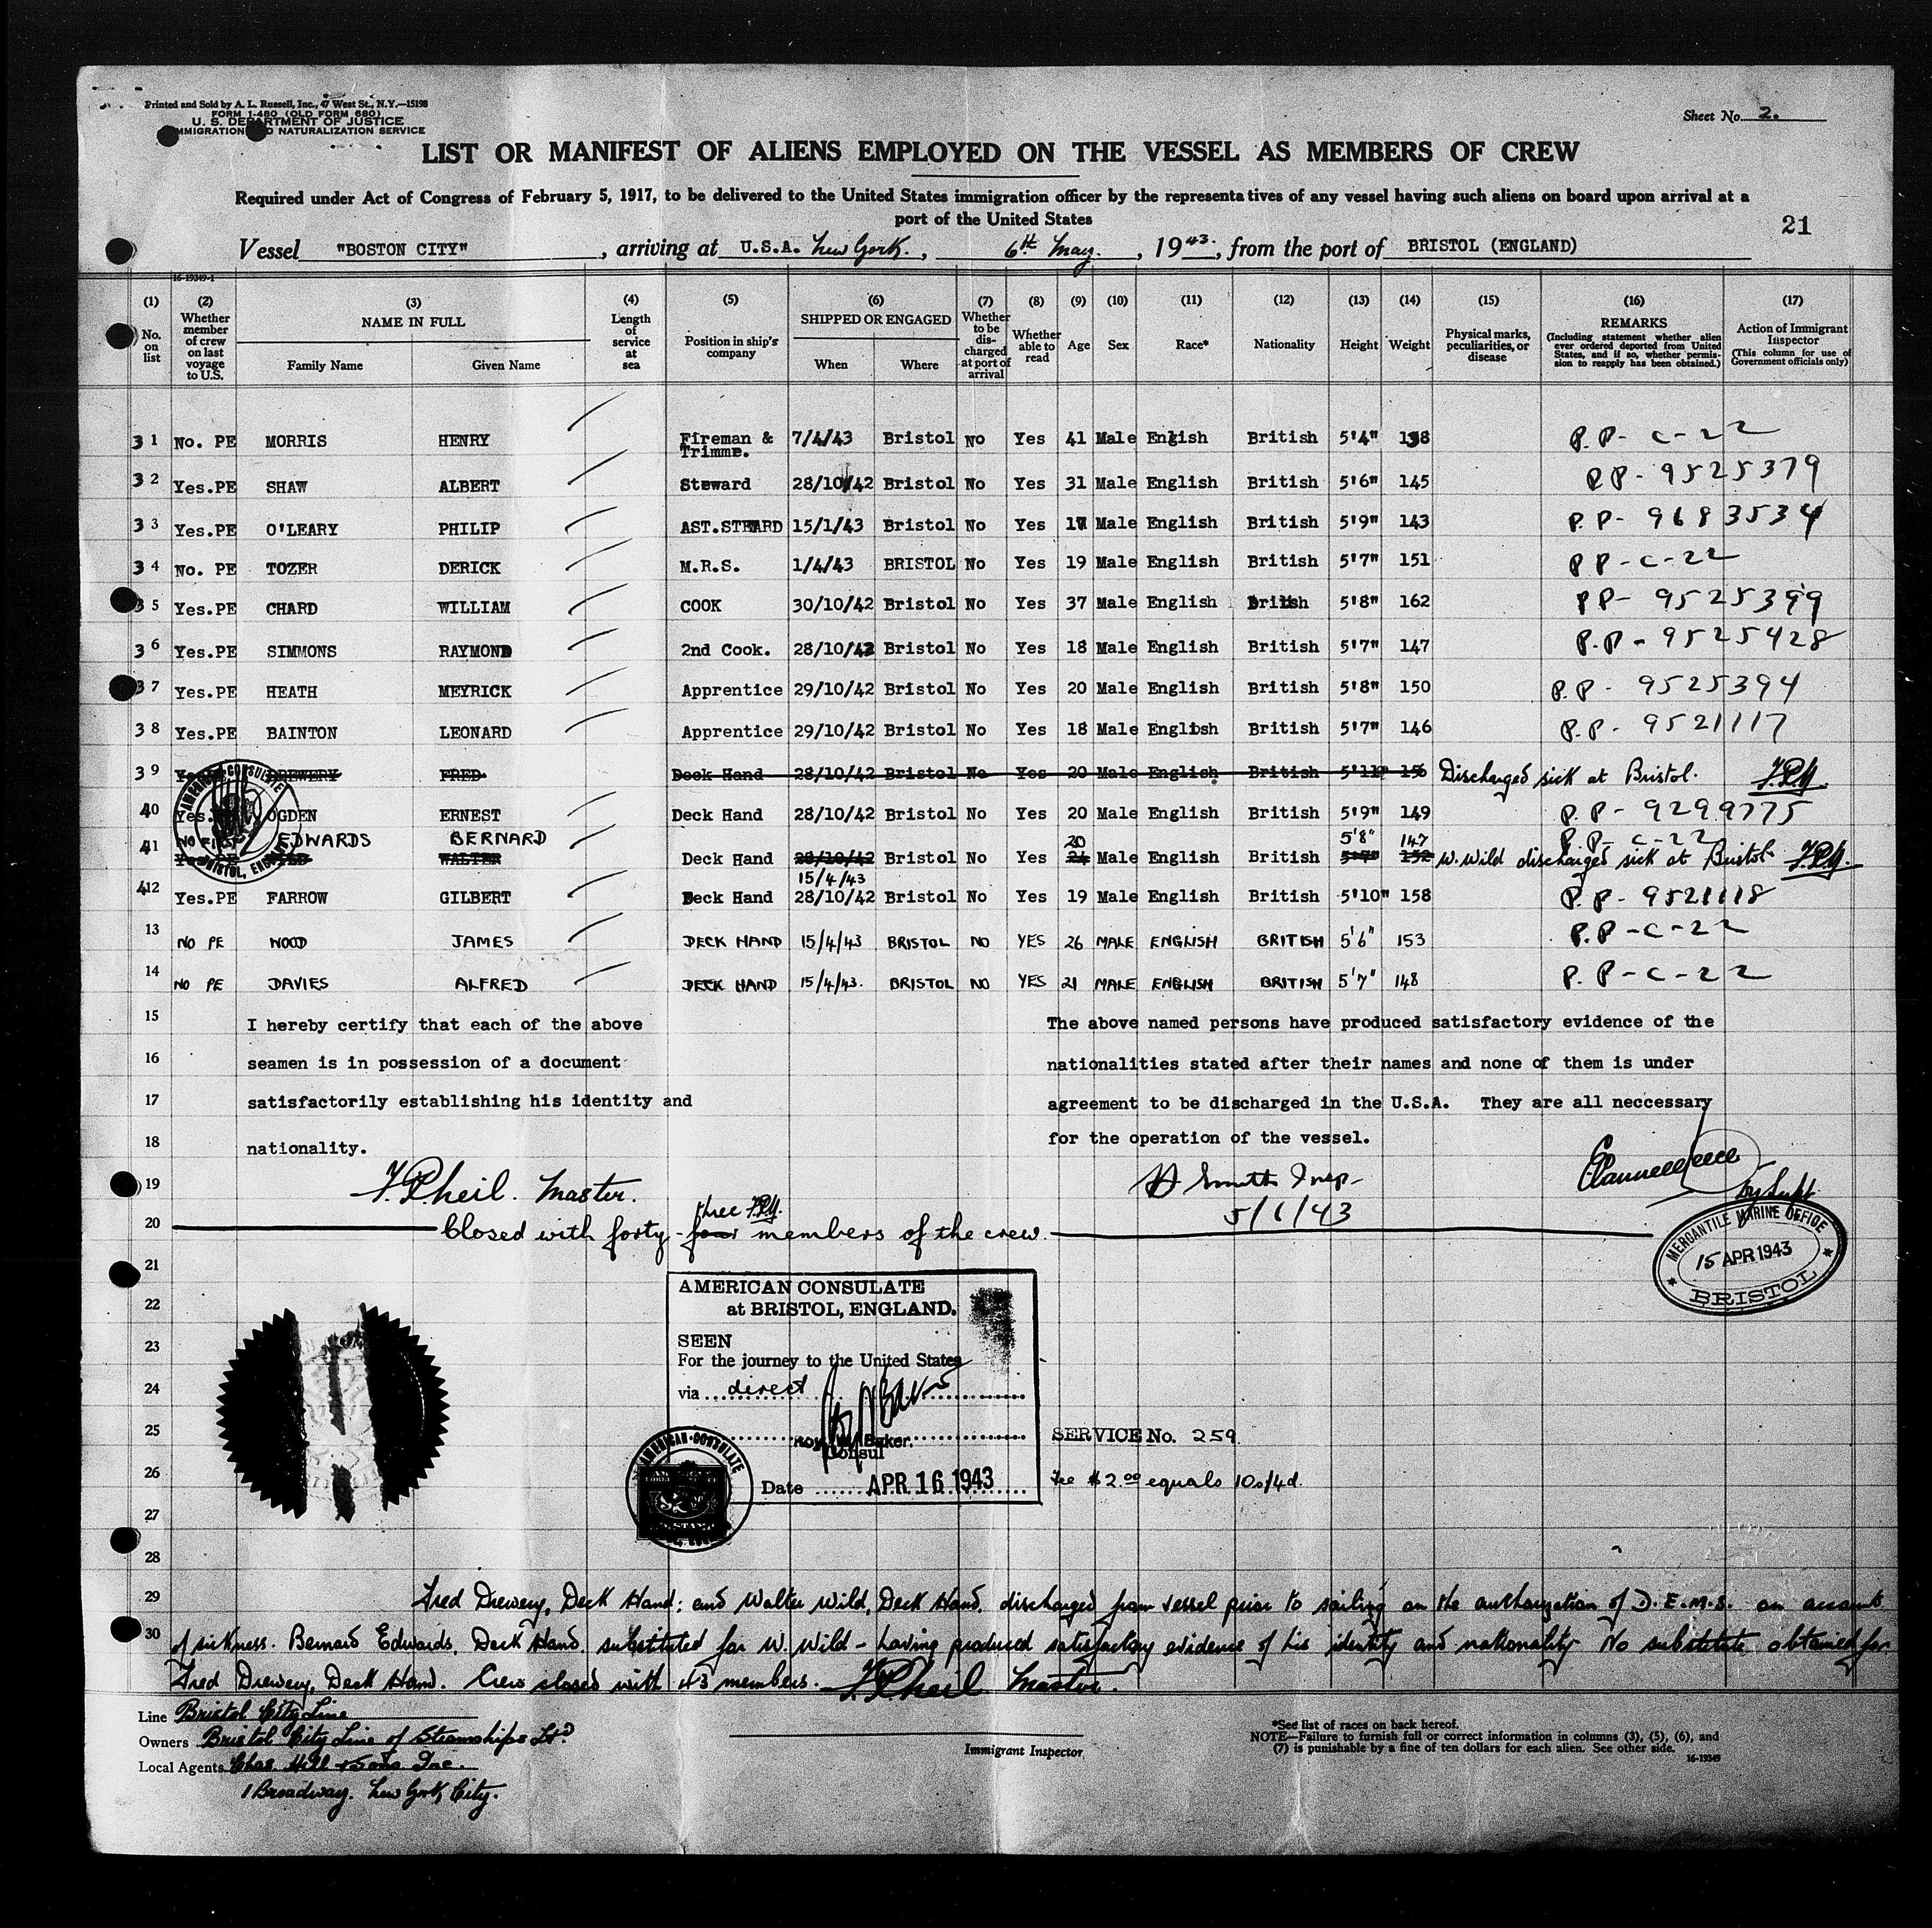 Printed and Sold by A. L. Russell, Inc., 47 West St., N.Y.—15198
FORM I-480 (OLD FORM 680)
U. S. DEPARTMENT OF JUSTICE
IMMIGRATION AND NATURALIZATION SERVICE
Sheet No. 2.
LIST OR MANIFEST OF ALIENS EMPLOYED ON THE VESSEL AS MEMBERS OF CREW
Required under Act of Congress of February 5, 1917, to be delivered to the United States immigration officer by the representatives of any vessel having such aliens on board upon arrival at a
port of the United States
21
Vessel "BOSTON CITY", arriving at U.S.A. New York., 6th May., 1943., from the port of BRISTOL (ENGLAND)
16-19349-1
(1) No. on list
(2) Whether member of crew on last voyage to U.S.
(3) NAME IN FULL Family Name Given Name
(4) Length of service at sea
(5) Position in ship's company
(6) SHIPPED OR ENGAGED When Where
(7) Whether to be discharged at port of arrival
(8) Whether able to read
(9) Age
(10) Sex
(11) Race*
(12) Nationality
(13) Height
(14) Weight
(15) Physical marks, peculiarities, or disease
(16) REMARKS (Including statement whether alien ever ordered deported from United States, and if so, whether permission to reapply has been obtained.)
(17) Action of Immigrant Inspector (This column for use of Government officials only)
31 No. PE MORRIS HENRY Fireman & Trimmr. 7/4/43 Bristol No Yes 41 Male English British 5'4" 138 P.P- C-22
32 Yes.PE SHAW ALBERT Steward 28/10/42 Bristol No Yes 31 Male English British 5'6" 145 PP- 9525379
33 Yes.PE O'LEARY PHILIP AST.STEWARD 15/1/43 Bristol No Yes 17 Male English British 5'9" 143 P.P- 9683534
34 No. PE TOZER DERICK M.R.S. 1/4/43 BRISTOL No Yes 19 Male English British 5'7" 151 PP-C-22
35 Yes.PE CHARD WILLIAM COOK 30/10/42 Bristol No Yes 37 Male English British 5'8" 162 PP- 9525399
36 Yes.PE SIMMONS RAYMOND 2nd Cook. 28/10/42 Bristol No Yes 18 Male English British 5'7" 147 P.P- 9525428
37 Yes.PE HEATH MEYRICK Apprentice 29/10/42 Bristol No Yes 20 Male English British 5'8" 150 P.P- 9525394
38 Yes.PE BAINTON LEONARD Apprentice 29/10/42 Bristol No Yes 18 Male English British 5'7" 146 P.P- 9521117
39 DREWERY FRED Deck Hand 28/10/42 Bristol No Yes 20 Male English British 5'11" 156 Discharged sick at Bristol.
40 Yes. OGDEN ERNEST Deck Hand 28/10/42 Bristol No Yes 20 Male English British 5'9" 149 P.P- 9299775
EDWARDS BERNARD 20 5'8" 147 P.P- C-22
41 Yes.PE WILD WALTER Deck Hand 28/10/42 Bristol No Yes 24 Male English British 5'7" 152 W. Wild discharged sick at Bristol
15/4/43
42 Yes.PE FARROW GILBERT Deck Hand 28/10/42 Bristol No Yes 19 Male English British 5'10" 158 P.P- 9521118
13 NO PE WOOD JAMES DECK HAND 15/4/43 BRISTOL NO YES 26 MALE ENGLISH BRITISH 5'6" 153 P.P-C-22
14 NO PE DAVIES ALFRED DECK HAND 15/4/43. BRISTOL NO YES 21 MALE ENGLISH BRITISH 5'7" 148 P.P-C-22
15 I hereby certify that each of the above The above named persons have produced satisfactory evidence of the
16 seamen is in possession of a document nationalities stated after their names and none of them is under
17 satisfactorily establishing his identity and agreement to be discharged in the U.S.A. They are all neccessary
18 nationality. for the operation of the vessel.
19 Master. Smith Insp-
5/6/43
three
20 Closed with forty-four members of the crew.
MERCANTILE MARINE OFFICE
15 APR 1943
BRISTOL
21
22
23
24
25
26
27
28
AMERICAN CONSULATE
at BRISTOL, ENGLAND.
SEEN
For the journey to the United States
via direct
Baker.
Consul
Date APR 16 1943
AMERICAN CONSULATE
SERVICE No. 259
Fee $2.00 equals 10s/4d.
29 Fred Drewery, Deck Hand: and Walter Wild, Deck Hand. discharged from vessel prior to sailing on the authorization of D.E.M.S. on account
30 of sickness. Bernard Edwards, Deck Hand, substituted for W. Wild - having produced satisfactory evidence of his identity and nationality. No substitute obtained for
Fred Drewery, Deck Hand. Crew closed with 43 members. Master.
Line Bristol City Line
Owners Bristol City Line of Steamships Ltd
Local Agents Chas Hill & Sons Inc.
1 Broadway. New York City.
Immigrant Inspector
*See list of races on back hereof.
NOTE—Failure to furnish full or correct information in columns (3), (5), (6), and
(7) is punishable by a fine of ten dollars for each alien. See other side. 16-19349